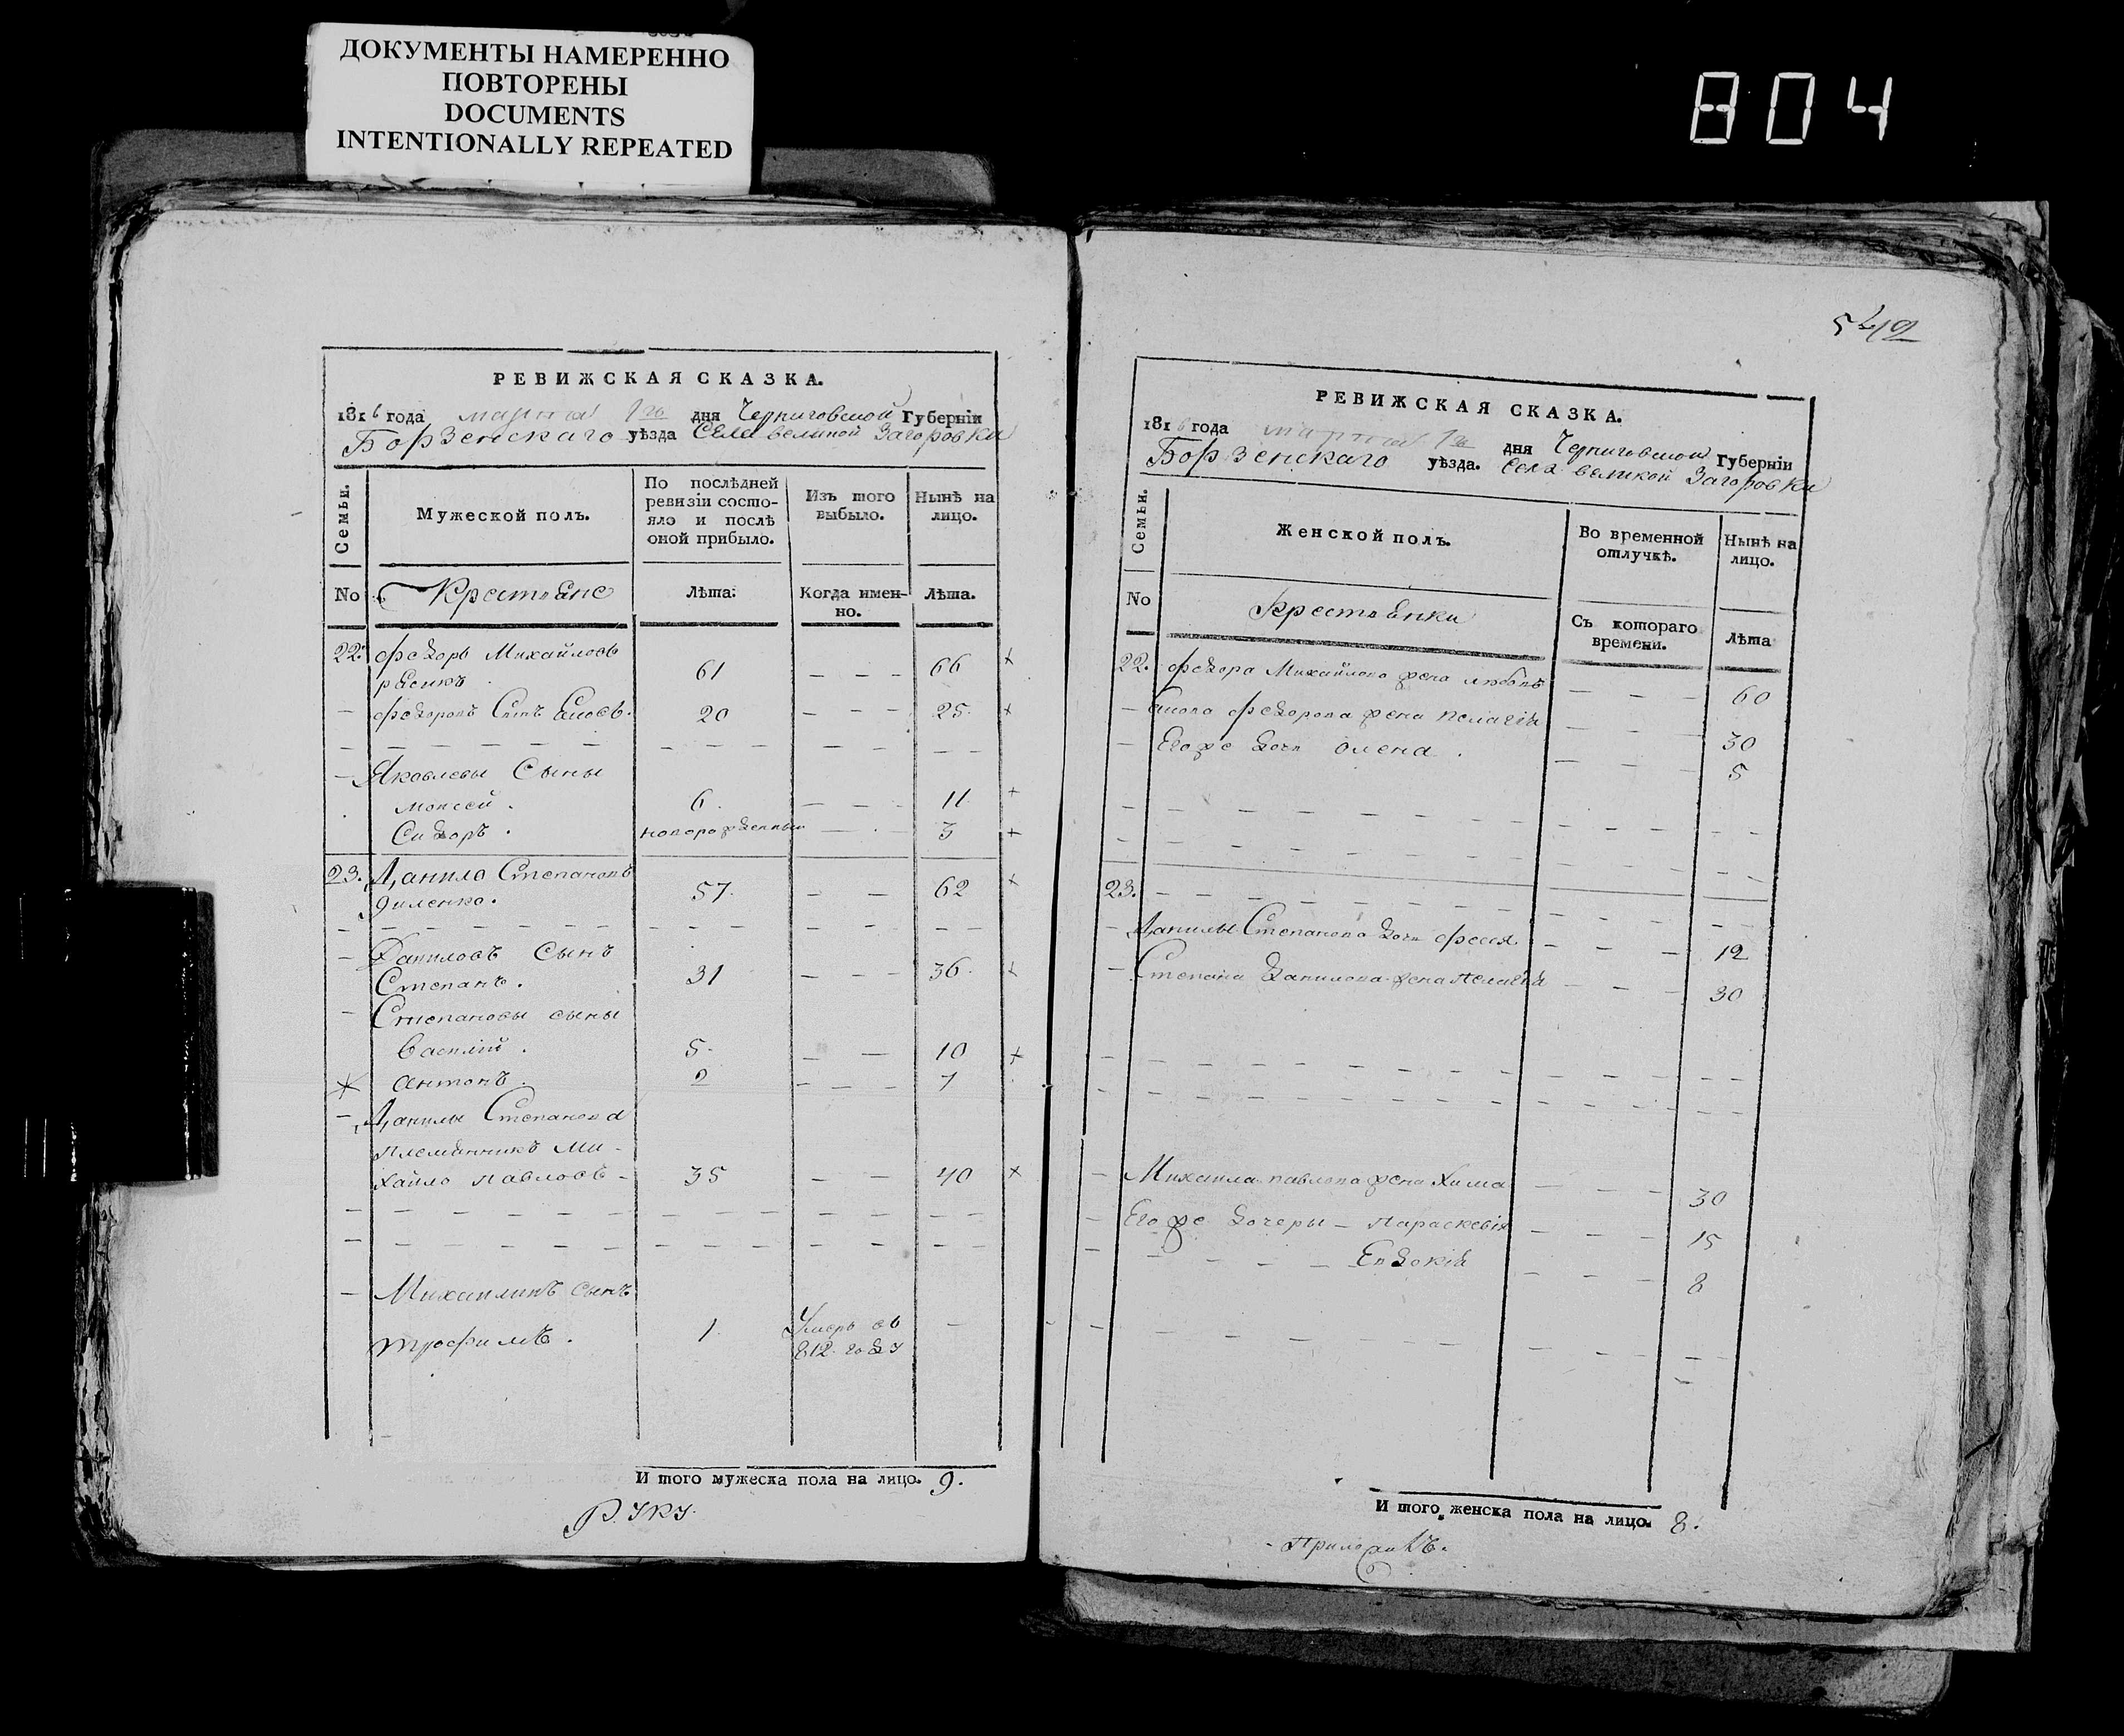 ДОКУМЕНТЫ НАМЕРЕННО
ПОВТОРЕНЫ
DOCUMENTS
INTENTIONALLY REPEATED
804
РЕВИЖСКАЯ СКАЗКА.
1816 года марта 1го дня Черниговской Губернїи
Борзенскаго уѣзда Села великой Загоровки
Семьи.
Мужеской полъ.
По послѣдней
ревизїи состо-
яло и послѣ
оной прибыло.
Изъ того
выбыло.
Нынѣ на
лицо.
No
Крестяне
Лѣта.
Когда имен-
но.
Лѣта.
22. Федоръ Михайловъ
61 - - - 66 x
Федоровъ Сынъ 20 - - - 25. x
Яковлевы Сыны
Моисей. 6. - - - 11. x
Сидоръ. новорожденный - 3 x
23. Данило Степановъ
57. - - 62 x
Даниловъ Сынъ
Степанъ. 31 - - - 36. x
Степановы сыны
Василій. 5. - - 10 x
x Антонъ. 2 - - - 7
Данилы Степанова
племянникъ Ми-
хайло павловъ - 35 - - 40 x
Михайлинъ сынъ
трофимъ. 1. Умеръ въ
812. году
И того мужеска пола на лицо. 9.
Руку.
542
РЕВИЖСКАЯ СКАЗКА.
1816 года марта 1го дня Черниговской Губернїи
Борзенскаго уѣзда. Села великой Загоровки
Семьи.
Женской полъ.
Во временной
отлучкѣ.
Нынѣ на
лицо.
No
Крестянки
Съ котораго
времени.
Лѣта
22. Федора Михайлова жена любовъ - - - 60
Федорова жена пелагія - - - 30
Его же дочь олена. - - - 5
23.
Данилы Степанова дочь феся - - - 12
Степана данилова жена пелагія - - - 30
Михаила павлова жена Хима - - - 30
Его же дочеры - параскевія - - - 15
Евдокія - - - 8
И того женска пола на лицо. 8.
Приложилъ.